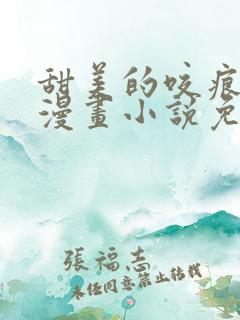 甜美的咬痕
漫畫小說免
張福志
未经同意禁止转载